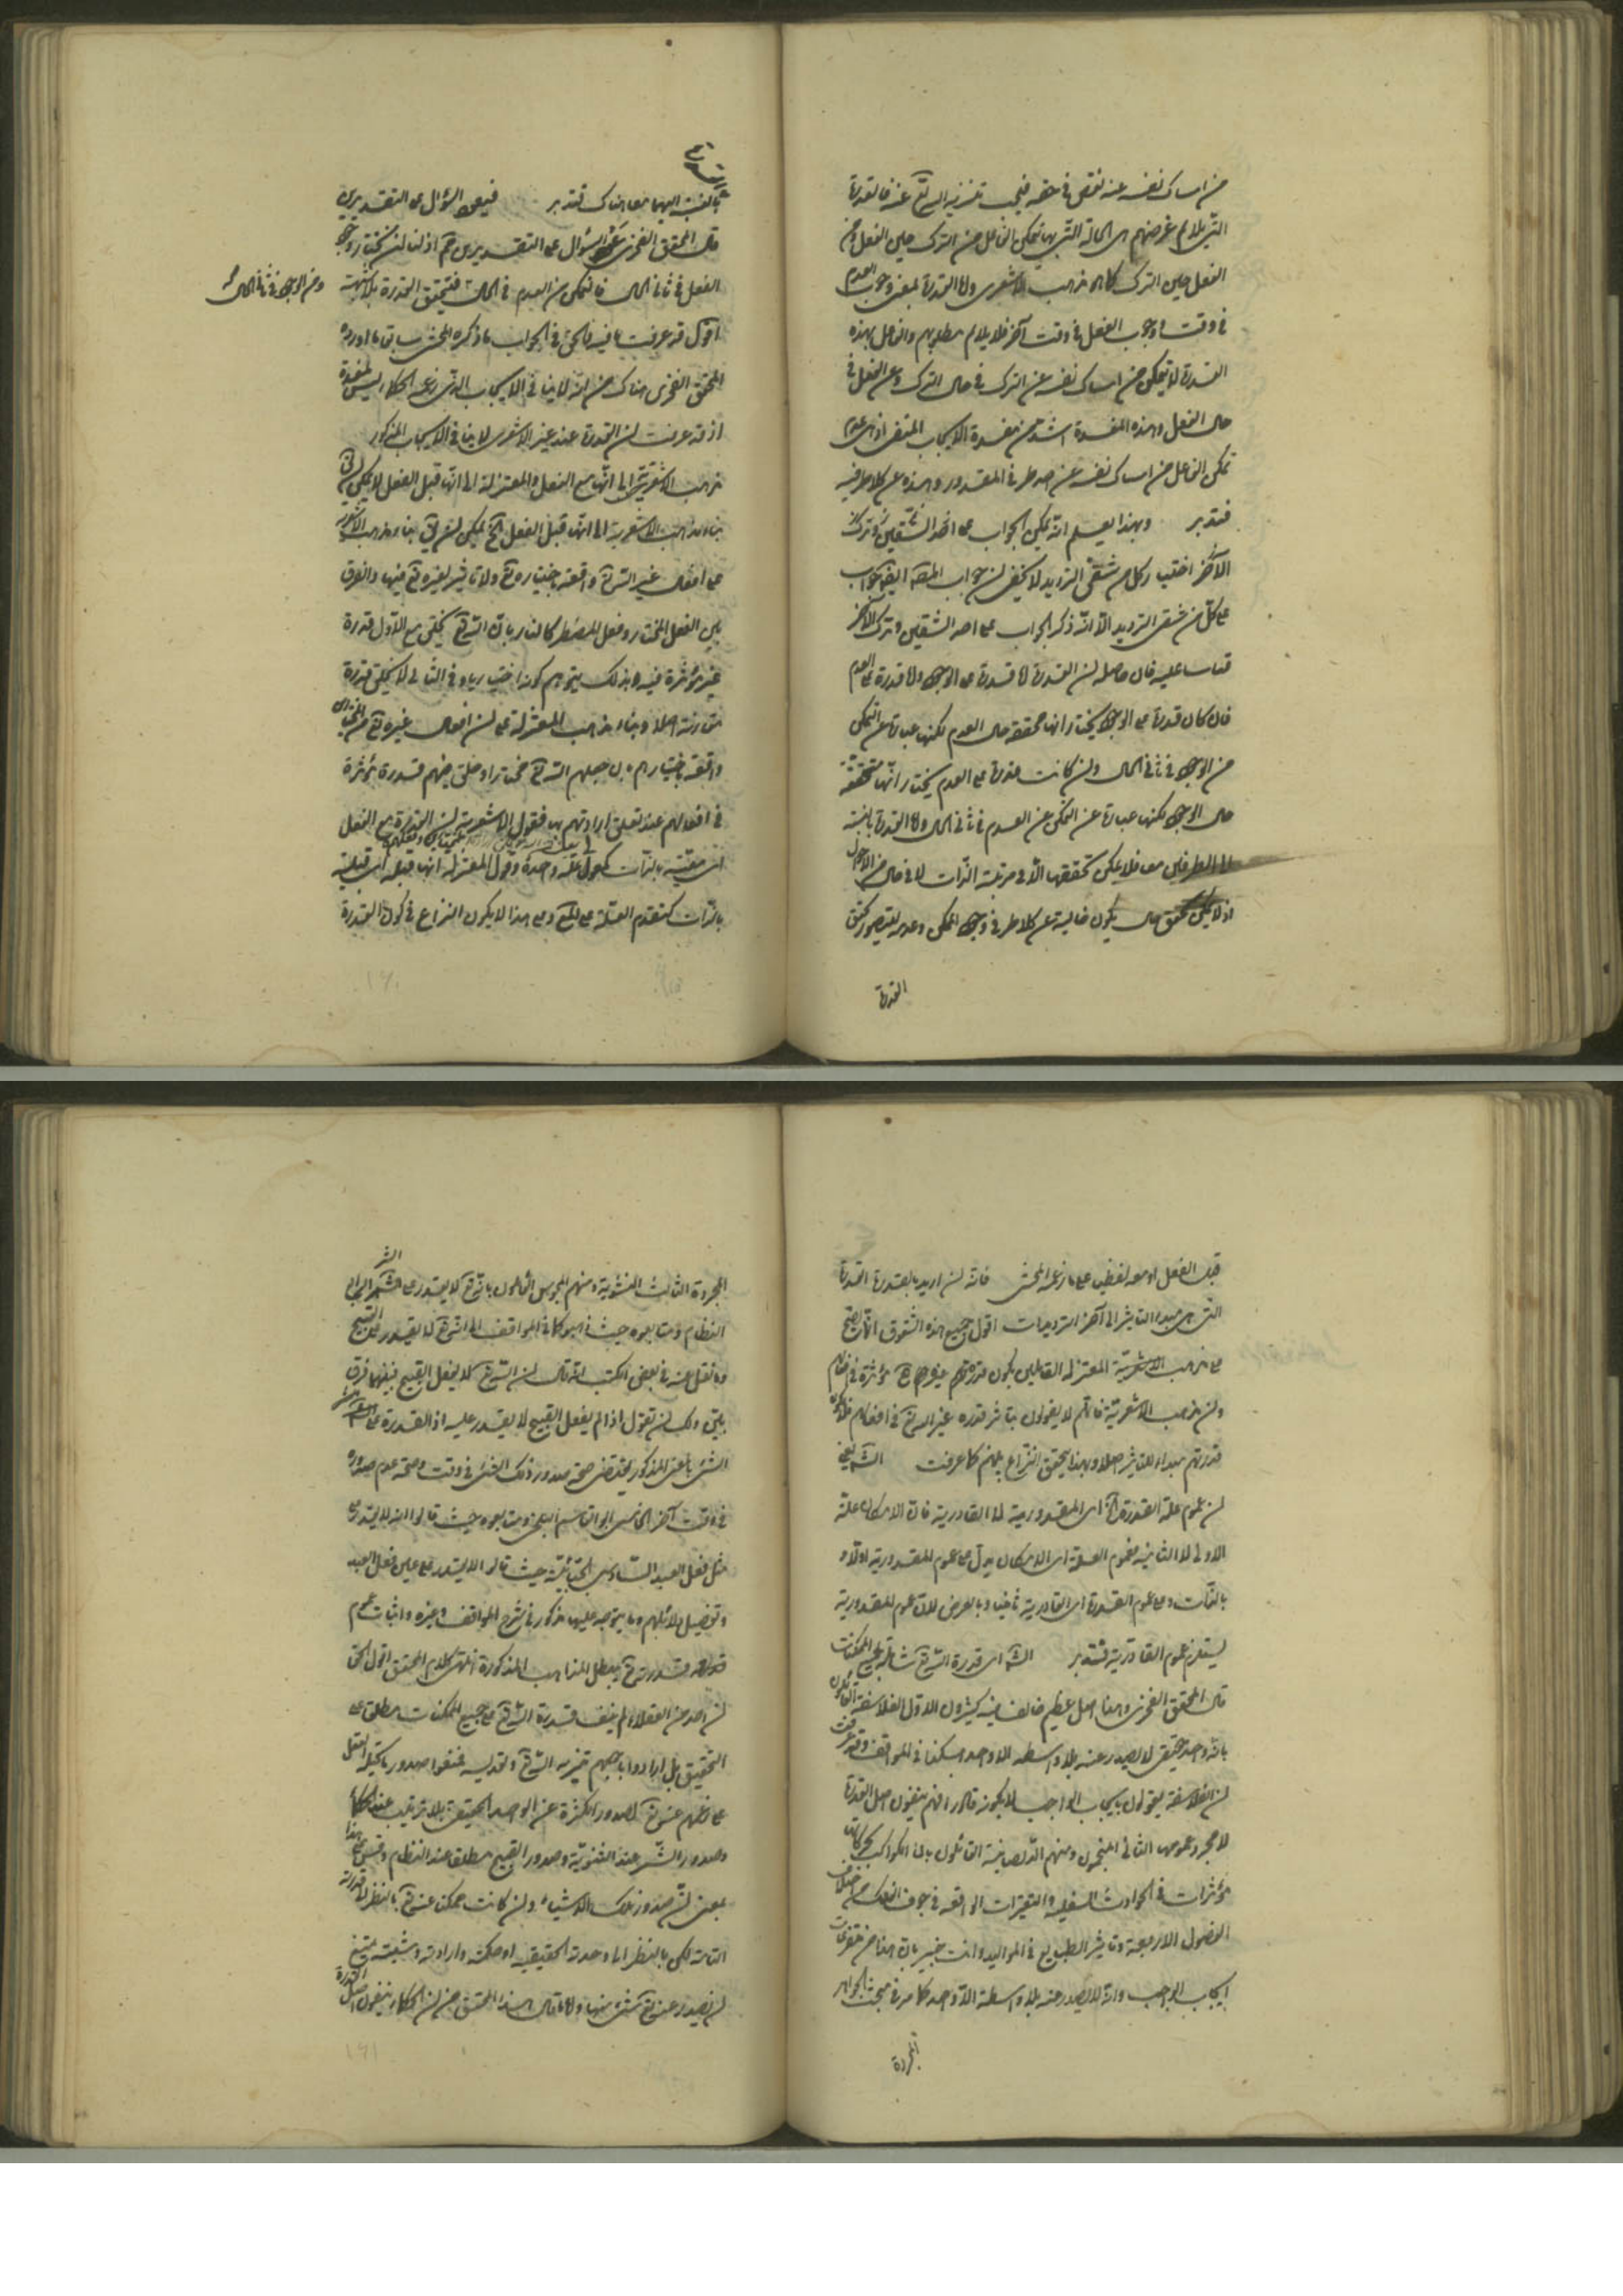 من امساك نفسه عنه نقص في حقه فيجب تنزيه الله تع عنه فالقدرة
التي يلايم غرضهم هي الحالة التي بها يتمكن الفاعل من الترك حين الفعل ومن
الفعل حين الترك كما هو مذهب الاشعري واما القدرة بمعنى وجوب العدم
في وقت ووجوب الفعل في وقت آخر فلا يلايم مطلوبهم والفاعل بهذه
القدرة لا يتمكن من امساك نفسه عن الترك في حال الترك وعن الفعل في
حال الفعل وهذه المفسدة اشد من مفسدة الايجاب المنفي اذ هي عدم
تمكن الفاعل من امساك نفسه عن احد طرفي المقدور وهذه عن كلا طرفيه
فتدبر وبهذا يعلم انه يمكن الجواب على احد الشقين وترك
الآخر اختيار كل من شقي الترديد لا يخفى ان جواب المص ايضا جواب
على كل من شقي الترديد الا انه ذكر الجواب على احد الشقين وترك الآخر
قياسا عليه فان حاصله ان القدرة اما قدرة على الوجود واما قدرة على العدم
فان كان قدرة على الوجود يختار انها محققة حال العدم لكنها عبارة عن التمكن
من الوجود في ثاني الحال وان كانت قدرة على العدم يختار انها متحققة
حال الوجود لكنها عبارة عن التمكن من العدم في ثاني الحال واما القدرة بالنسبة
الى الطرفين معا فلا يمكن تحققها الا في مرتبة الذات لا في حال من الاحوال
اذ لا يمكن تحقق حال يكون خالية عن كلا طرفي وجود الممكن وعدمه ليتصور تحقق
القدرة
بالنسبة اليهما معا هناك فتدبر فيعود السؤال على التقديرين
قال المحقق الفخري عود السؤال على التقديرين مم اذ لنا ان نختار وجود
الفعل في ثاني الحال فالتمكن من العدم في الحال فتتحقق القدرة بلا شبهة
ومن الوجود في ثاني الحال
اقول قد عرفت ما فيه فالحق في الجواب ما ذكره المحشي سابقا وما اورده
المحقق الفخري هناك من انه لا ينافي الايجاب الذي زعمه الحكماء ليس بمفسدة
اذ قد عرفت ان القدرة عند غير الاشعري لا ينافي الايجاب المذكور
ذهب الاشعرية الى انها مع الفعل والمعتزلة الى انها قبل الفعل لا يمكن ان
بناء مذهب الاشعرية الى انها قبل الفعل الخ يمكن ان يق بناء مذهب الاشعرية
على افعال غير الله تع واقعة باختياره تع ولا تاثير لغيره تع فيها والفرق
بين الفعل المختار وفعل المضطر كالنار بان الله تع يخلق مع الاول قدرة
غير مؤثرة فيه وبذلك يتوهم كونه اختياريا وفي الثاني لا يخلق قدرة
مقارنة اصلا وبناء مذهب المعتزلة على ان افعال غيره تع من المختارين
واقعة باختيارهم بل جعلهم الله تع مختارا وخلق فيهم قدرة مؤثرة
في افعالهم عند تعلق ارادتهم بها فقول الاشعرية ان القدرة مع الفعل
اي معيته بالذات كمعلولي علة واحدة وقول المعتزلة انها قبله اي قبلية
بالذات كتقدم العلة على المع وعلى هذا لا يكون النزاع في كون القدرة
١٦٠
قبل الفعل او معه لفظيا على ما زعمه المحشي فانه ان اريد بالقدرة القدرة
التي هي مبدا التاثير الى آخر الترديدات اقول جميع هذه الشقوق انما يصح
على مذهب المعتزلة القائلين بكون قدرة غيره تع مؤثرة في افعالهم
دون مذهب الاشعرية فانهم لا يقولون بتاثير قدرة غير الله تع في افعالهم فلا يكون
قدرتهم مبداء للتاثير اصلا وبهذا يتحقق النزاع بينهم كما عرفت الش يعني
ان عموم علة القدرة اي المقدورية لا القادرية فان الامكان علة
الاولى لا الثانية فعموم العلة اي الامكان يدل على عموم المقدورية اولا و
بالذات وعلى عموم القدرة اي القادرية ثانيا وبالعرض لان عموم المقدورية
يستلزم عموم القادرية فتدبر الش اي قدرة الله تع شاملة لجميع الممكنات
قال المحقق الفخري وهذا اصل عظيم خالف فيه كثيرون الاول الفلاسفة القائلون
بانه واحد حقيقي لا يصدر عنه بلا واسطة الا واحد هكذا في المواقف وقد عرفت
ان الفلاسفة يقولون بايجاب الواجب لا بكونه قادرا فهم ينفون اصل القدرة
لا مجرد عمومها الثاني المنجمون ومنهم الصابئية القائلون بان الكواكب بحركاتها
مؤثرات في الحوادث السفلية والتغيرات الواقعة في جوف الفلك من اختلاف
الفصول الاربعة وتاثير الطبايع في المواليد وانت خبير بان هذا من متفرعات
ايجاب الواجب وانه لا يصدر عنه بلا واسطة الا واحد كما مر في مبحث الجواهر
المجردة
المجردة الثالث الثنوية ومنهم المجوس القائلون بانه تع لا يقدر على الشر الرابع
النظام ومتابعوه حيث ذهبوا كما في المواقف الى انه تع لا يقدر على القبيح
وما نقل عنه في بعض الكتب انه قال ان الله تع لا يفعل القبيح فبينهما فرق
بين ولك ان تقول اذا لم يفعل القبيح لا يقدر عليه اذ القدرة على
الشيء بالمعنى المذكور يقتضي صحة صدور ذلك الشيء في وقت وصحة عدم صدوره
في وقت آخر الخامس ابو القاسم البلخي ومتابعوه حيث قالوا انه لا يقدر على
مثل فعل العبد السادس الجبائية حيث قالوا لا يقدر على عين فعل العبد
وتفصيل دلائلهم وما يتوجه عليها مذكور في شرح المواقف وغيره واثبات عموم
قدرته تع يبطل المذاهب المذكورة انتهى كلام المحقق اقول الحق
ان احدا من العقلاء لم ينف قدرة الله تع على جميع الممكنات مطلقا على
التحقيق بل ارادوا باجمعهم تنزيه الله تع وتقديسه فنفوا صدور ما يحيله العقل
على زعمهم عنه تع كصدور الكثرة عن الواحد الحقيقي بلا ترتيب عند الحكماء
وصدور الشر عند الثنوية وصدور القبيح مطلقا عند النظام وقس على هذا
بمعنى ان صدور تلك الاشياء وان كانت ممكنا عنه تع بالنظر الى قدرته
التامة لكن بالنظر الى وحدته الحقيقية او حكمته وارادته ومشيته يمتنع
ان يصدر عنه تع شيء منها واما ما قال هذا المحقق من ان الحكماء ينفون اصل القدرة
١٦١